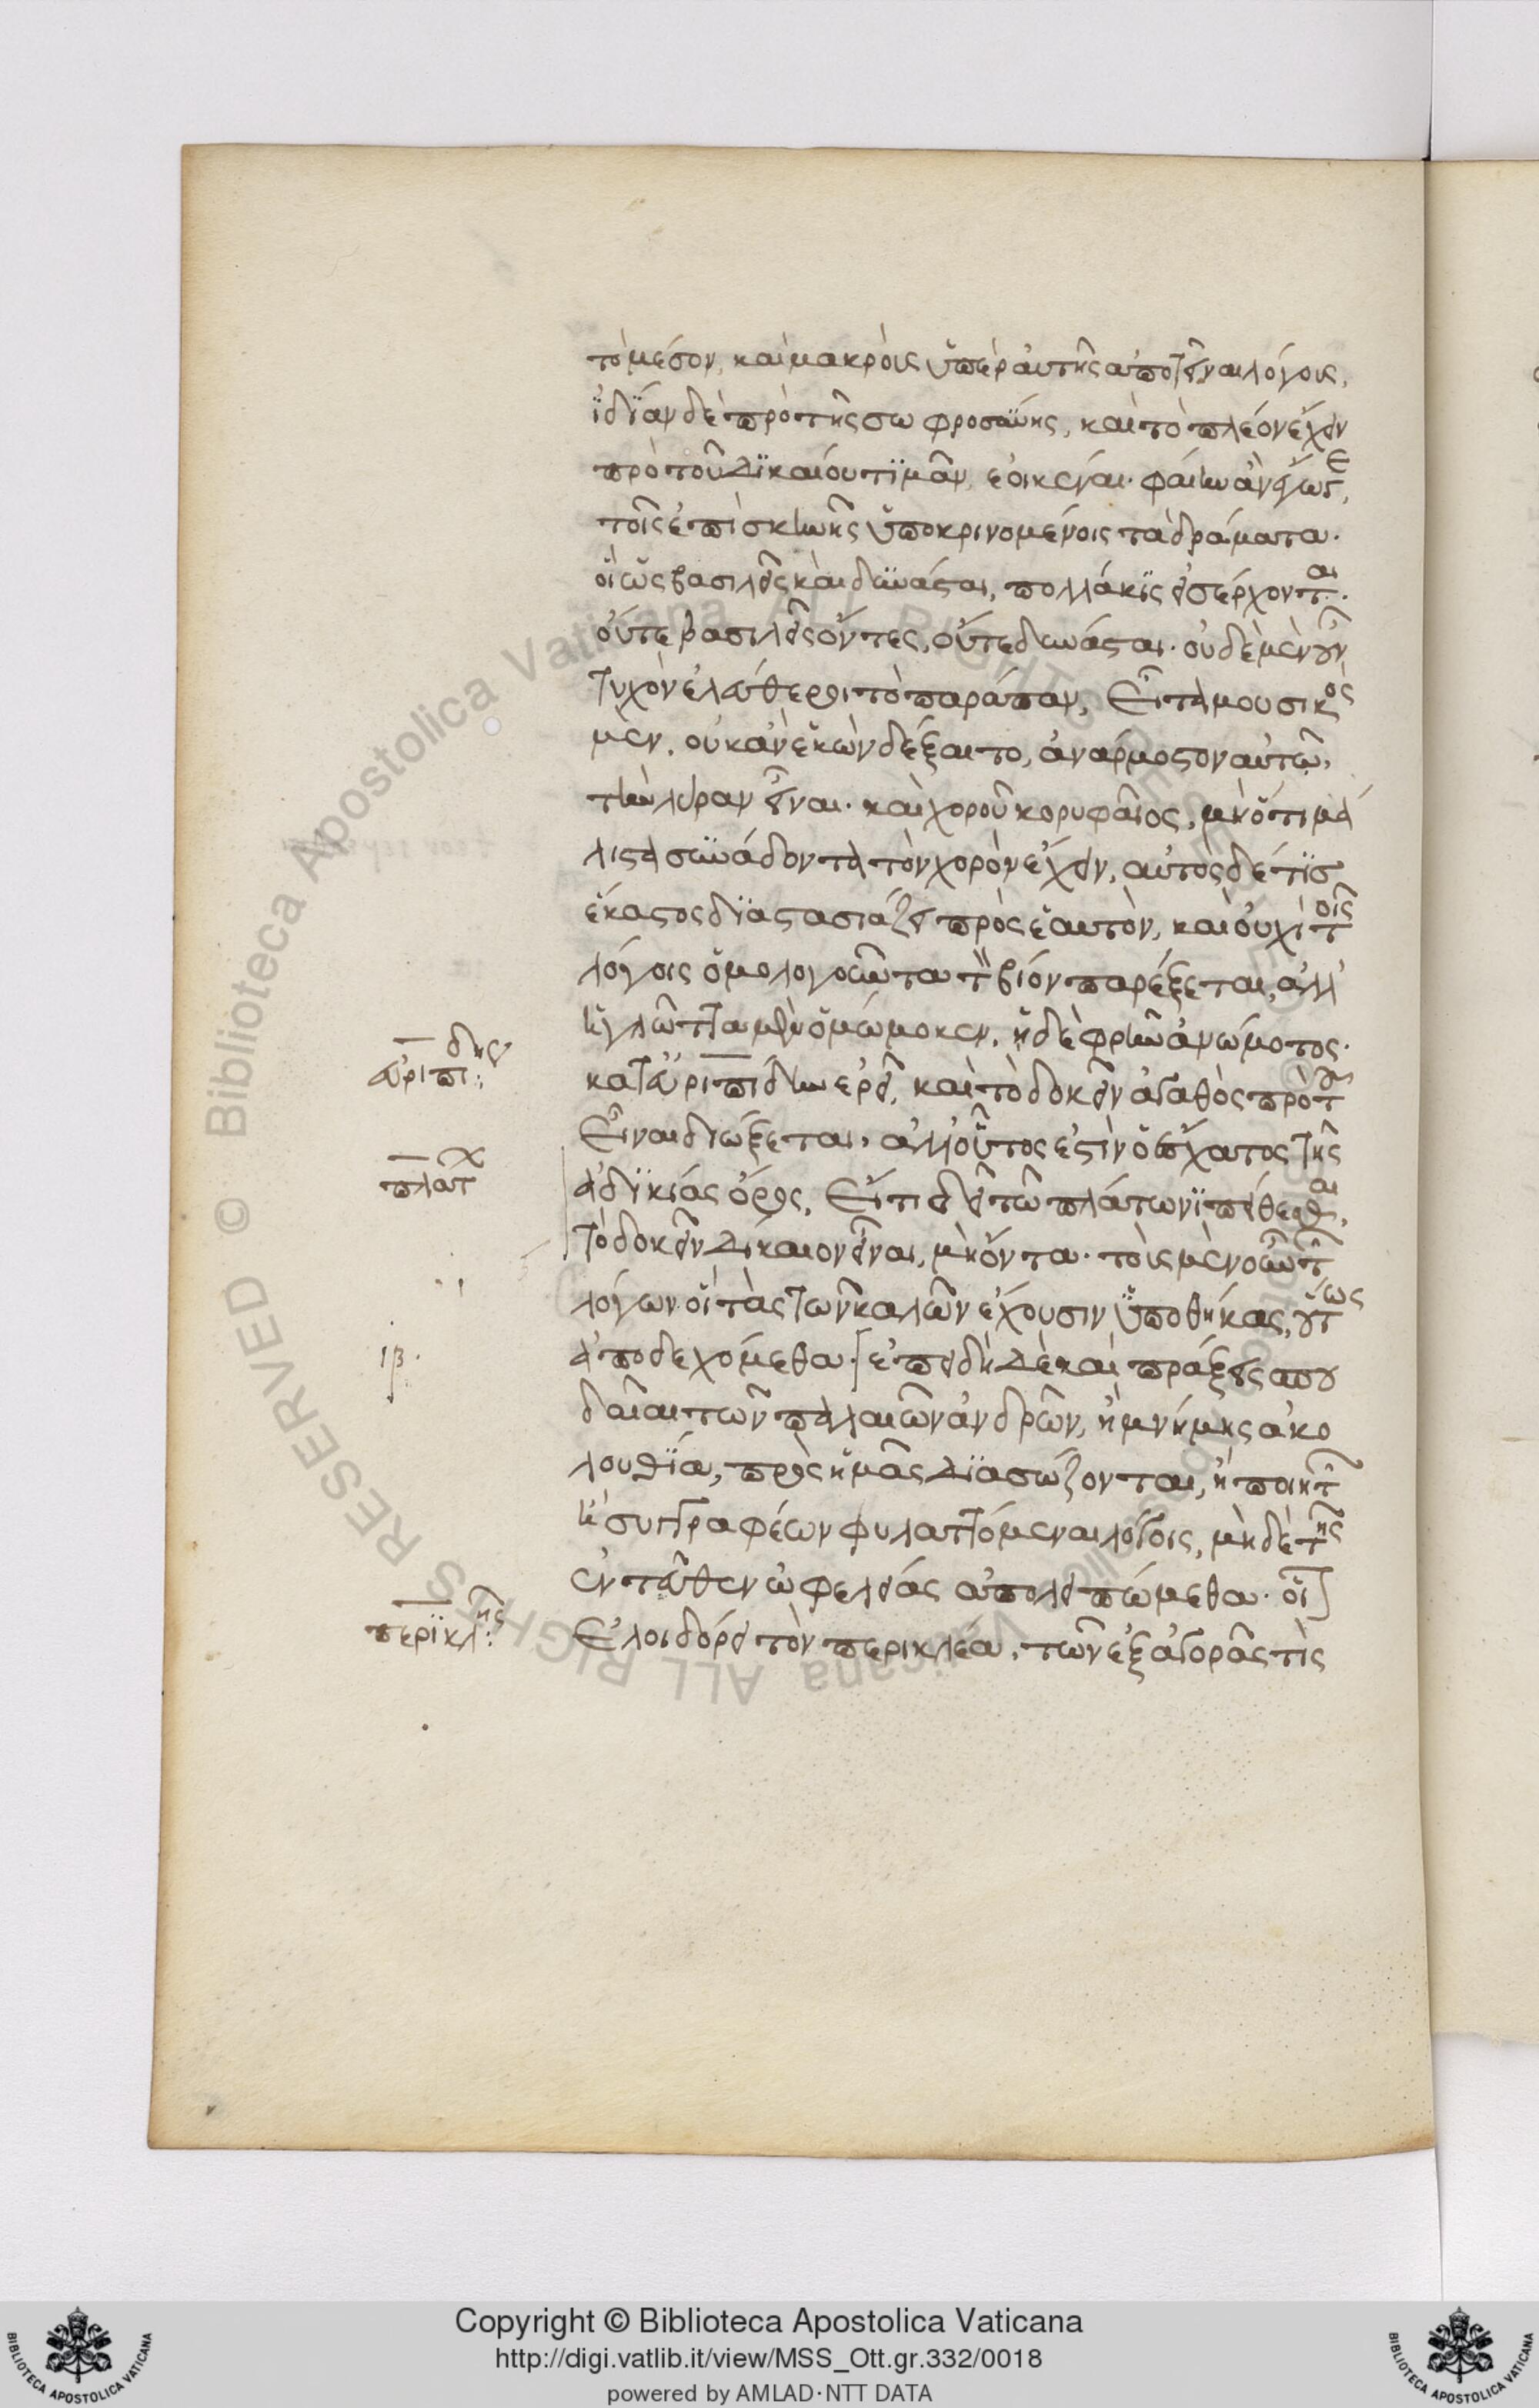 το μέσον, καὶ μακροὺς ὑπὲρ αὐτῆς ἀποτεῖναι λόγους,
ἰδίαν δὲ πρὸ τῆς σωφροσύνης, καὶ τὸ πλέον ἔχειν
πρὸ τοῦ δικαίου τιμᾶν, ἐοικέναι φαίην ἂν ἔγωγε
τοῖς ἐπὶ σκηνῆς ὑποκρινομένοις τὰ δράματα.
οἳ ὡς βασιλεῖς καὶ δυνάσται, πολλάκις εἰσέρχονται.
οὔτε βασιλεῖς ὄντες, οὔτε δυνάσται. οὐδὲ μὲν οὖν
τυχὸν ἐλεύθεροι τὸ παράπαν, εἶτα μουσικὸς
μὲν, οὐκ ἂν ἑκὼν δέξαιτο, ἀνάρμοστον αὐτῷ,
τὴν λύραν εἶναι. καὶ χοροῦ κορυφαῖος, μὴ ὅτι μά
λιστα συνάδοντα τὸν χορὸν ἔχειν, αὐτὸς δέ τις
ἕκαστος διαστασιάζει πρὸς ἑαυτὸν, καὶ οὐχὶ τοῖς
λόγοις ὁμολογοῦντα τὸν βίον παρέξεται, ἀλλ'
ἡ γλῶττα μὲν ὀμώμοκεν, ἡ δὲ φρὴν ἀνώμοτος.
κατ' εὐριπίδην ἐρεῖ, καὶ τὸ δοκεῖν ἀγαθὸς πρὸ τοῦ
εἶναι διώξεται, ἀλλ' οὗτός ἐστιν ὁ ἔσχατος τῆς
ἀδικίας ὅρος, εἴ τι δεῖ τῶ πλάτωνι πείθεσθαι,
τὸ δοκεῖν δίκαιον εἶναι, μὴ ὄντα. τοὺς μὲν οὖν τῶν
λόγων οἳ τὰς τῶν καλῶν ἔχουσιν ὑποθήκας, οὕτως
ἀποδεχόμεθα. [ἐπειδὴ δὲ καὶ πράξεις σπου
δαῖαι τῶν παλαιῶν ἀνδρῶν, ἢ μνήμης ἀκο
λουθία, πρὸς ἡμᾶς διασώζονται, ἢ ποιητῶν
ἢ συγγραφέων φυλαττόμεναι λόγοις, μηδὲ τῆς
ἐντεῦθεν ὠφελείας ἀπολειπώμεθα. οἷ]
ἐλοιδόρει τὸν περικλέα, τῶν ἐξ ἀγορᾶς τὶς
εὐριπίδης:
πλάτων
ιβ.
περικλῆς:
Copyright © Biblioteca Apostolica Vaticana
http://digi.vatlib.it/view/MSS_Ott.gr.332/0018
powered by AMLAD·NTT DATA